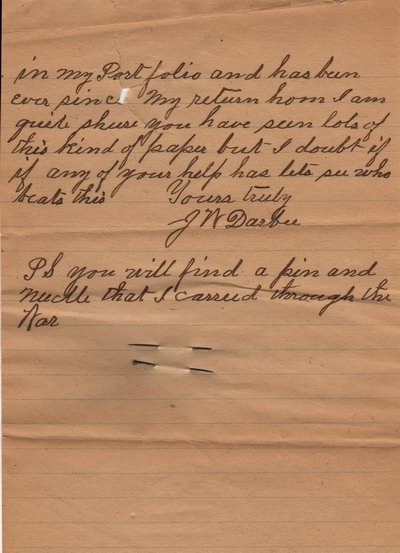 in my Port folio and has been
ever since My return hom I am
quite shure you have seen lots of
this kind of paper but I doubt if
if any of your help has lets see who
beats this Yours truly
J W Darbee
PS you will find a pin and
needle that I carreid through the
War